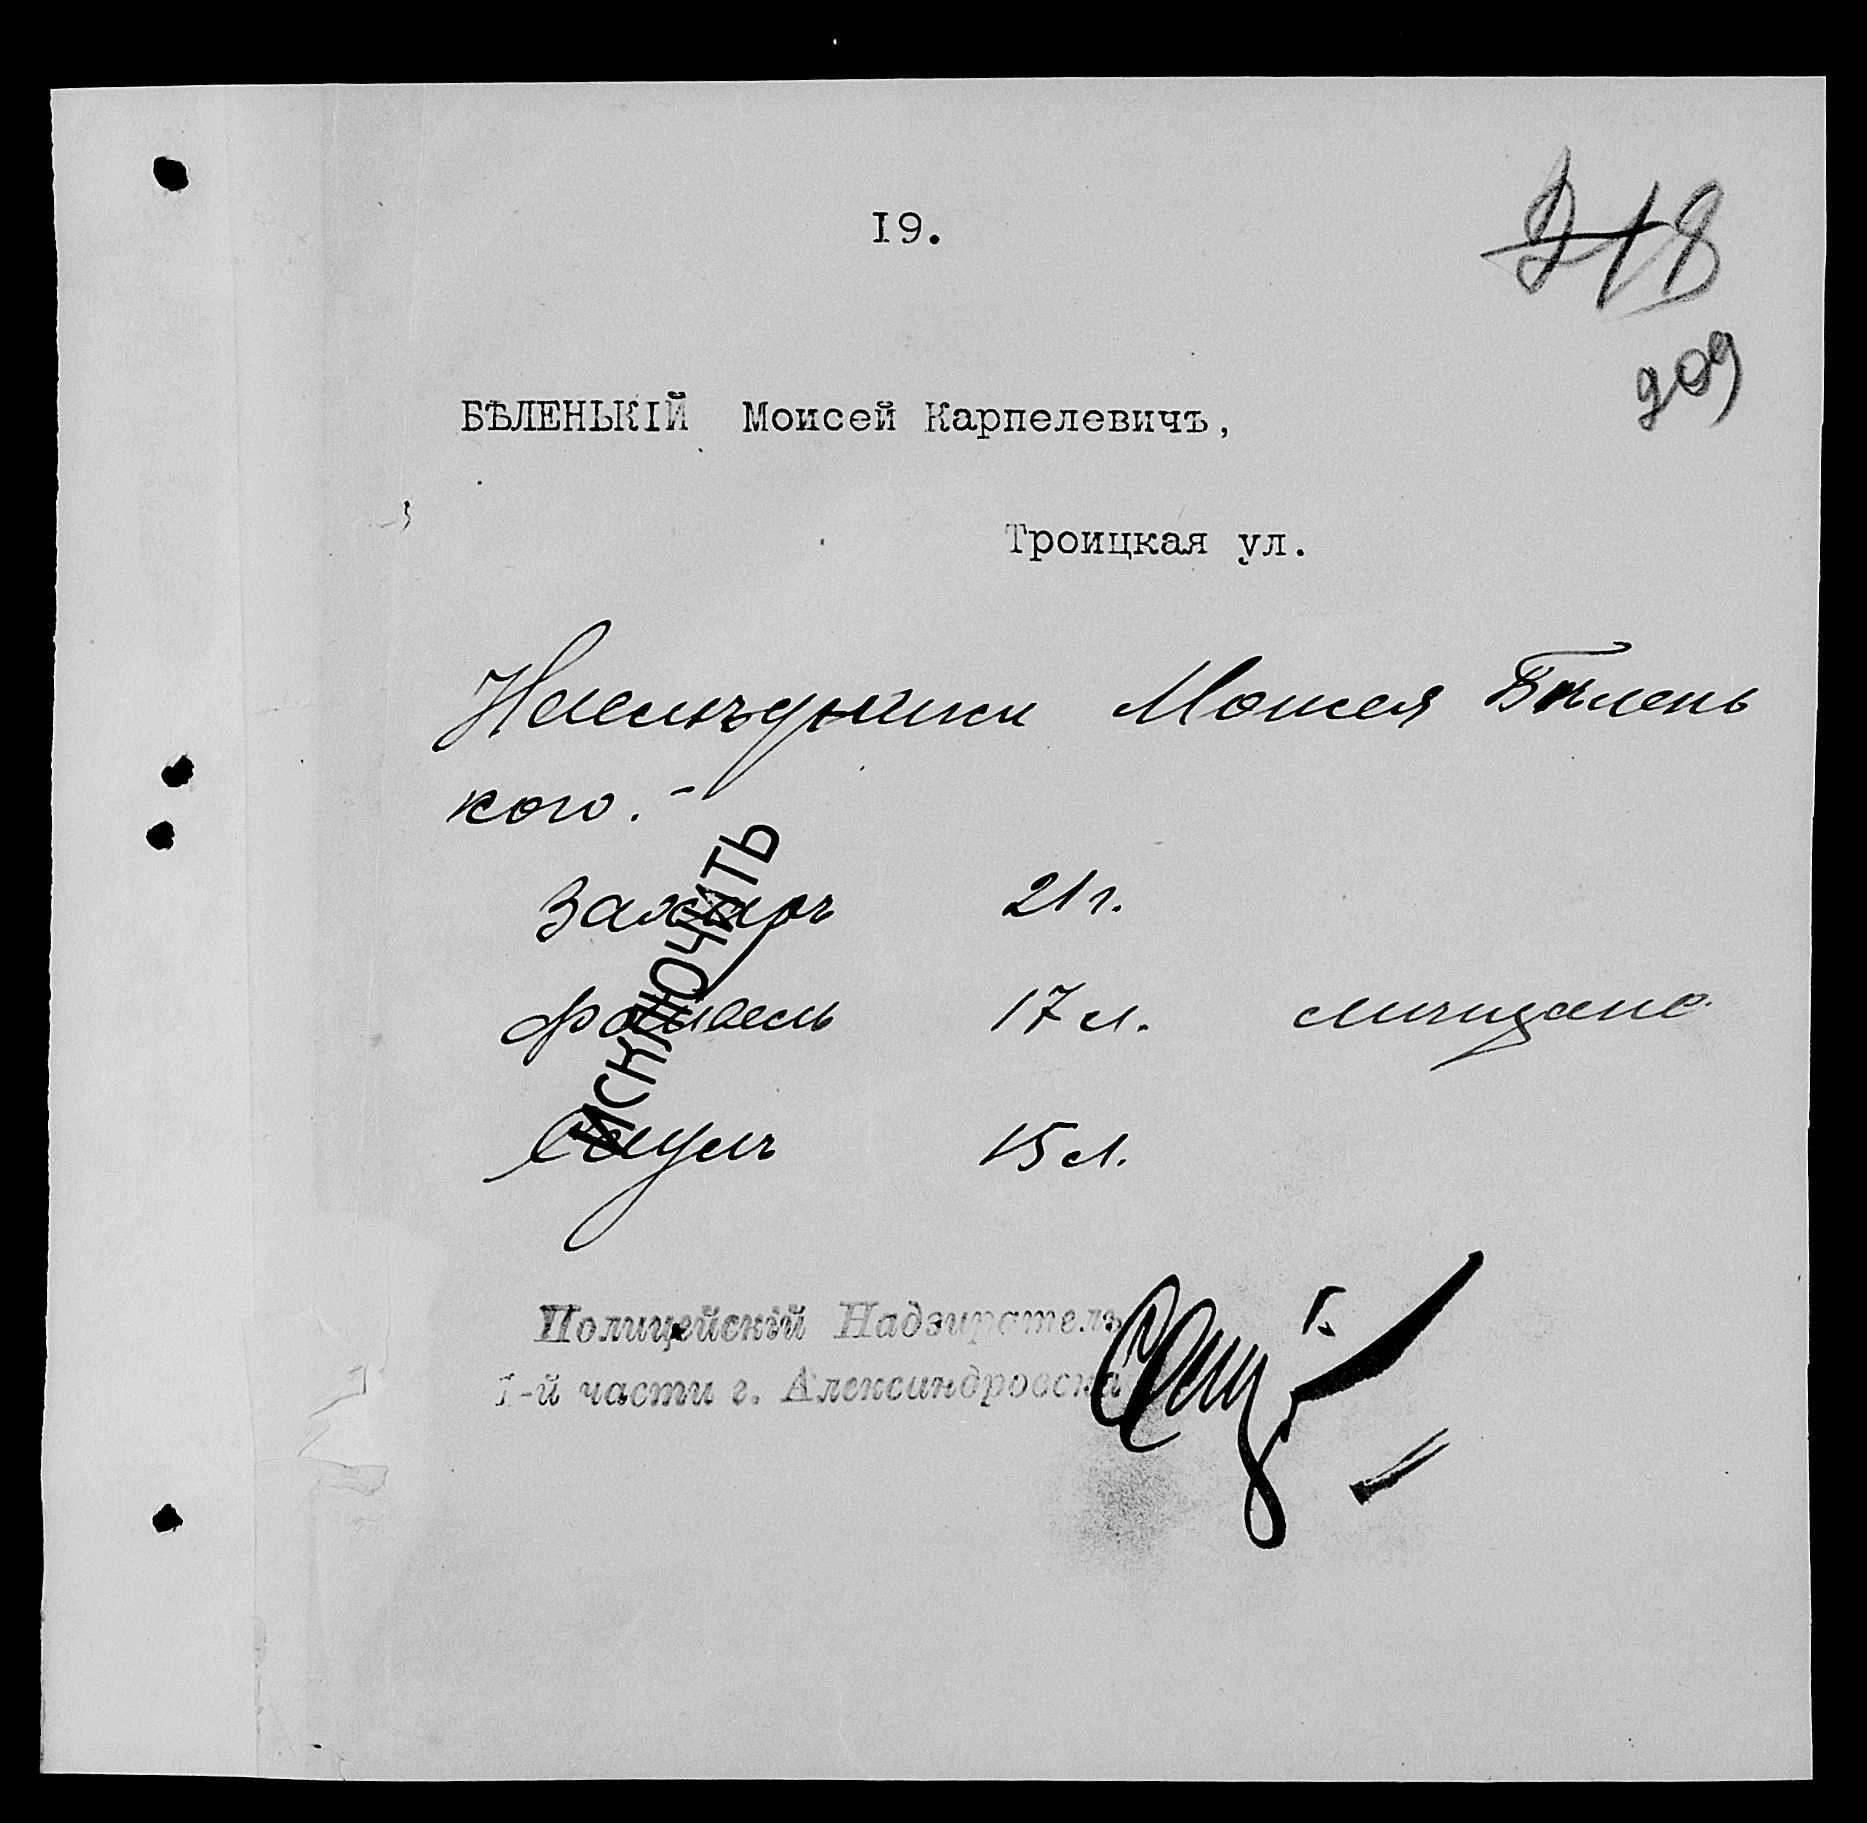 19.
218
209
БѢЛЕНЬКІЙ Моисей Карпелевичъ,
Троицкая ул.
Наслѣдники Моисея Бѣлень
кого.-
Захаръ 21 г.
Файвель 17 л.
Саулъ 15 л.
ИСКЛЮЧИТЬ
Полицейскій Надзиратель
1-й части г. Александровска